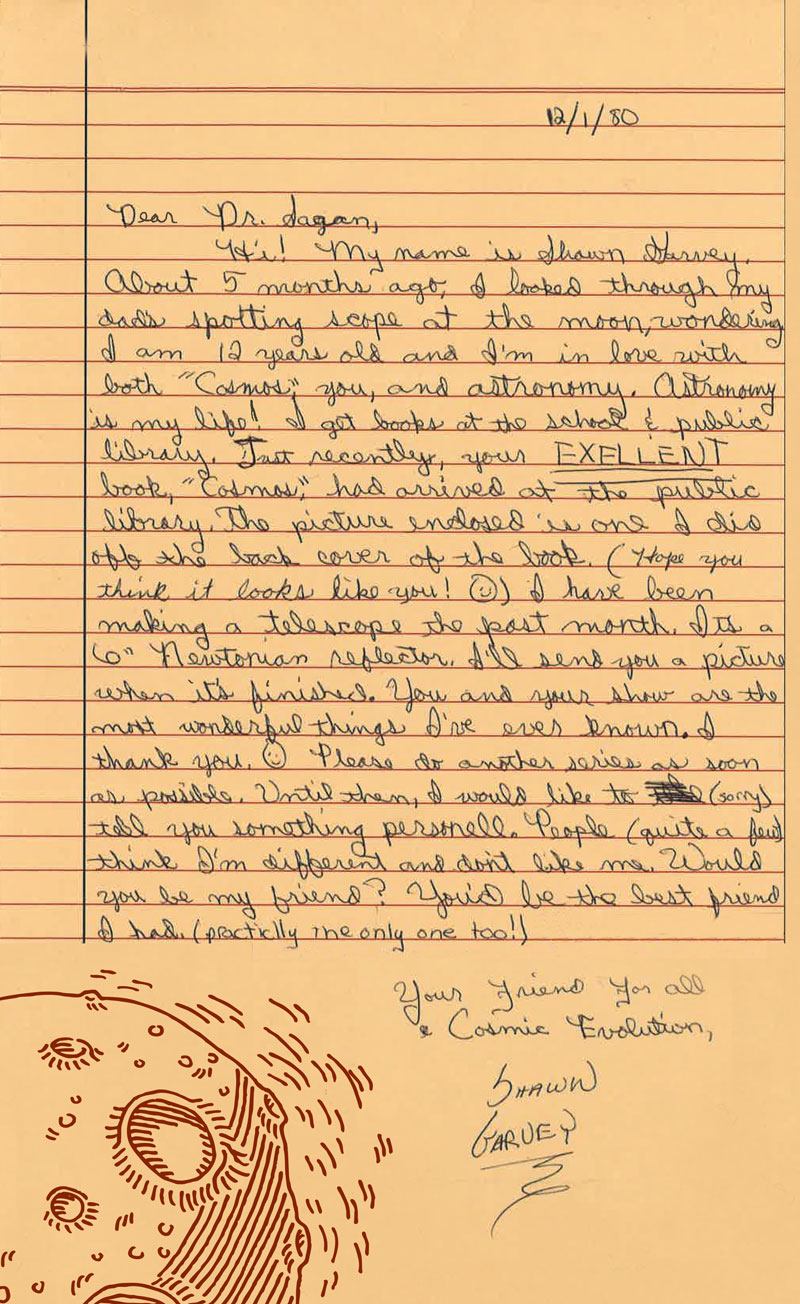 12/1/80
Dear Dr. Sagan,
Hi! My name is Shawn Harvey.
About 5 months ago, I looked through my
dad's spotting scope at the moon, wondering
I am 12 years old and I'm in love with
both "Cosmos," you, and astronomy. Astronomy
is my life! I get books at the school & public
library. Just recently, your EXELLENT
book, "Cosmos," had arrived at the public
library. The picture enclosed is one I did
off the back cover of the book. (Hope you
think it looks like you! ☺) I have been
making a telescope the past month. Its a
6" Newtonian reflector. I'll send you a picture
when it's finished. You and your show are the
most wonderful things I've ever known. I
thank you. ☺ Please do another series as soon
as possible. Until then, I would like to (sorry)
tell you something personell. People (quite a few)
think I'm different and don't like me. Would
you be my friend? You'd be the best friend
I had. (practiclly the only one too!)
Your Friend For all
Cosmic Evolution,
SHAWN
GARVEY